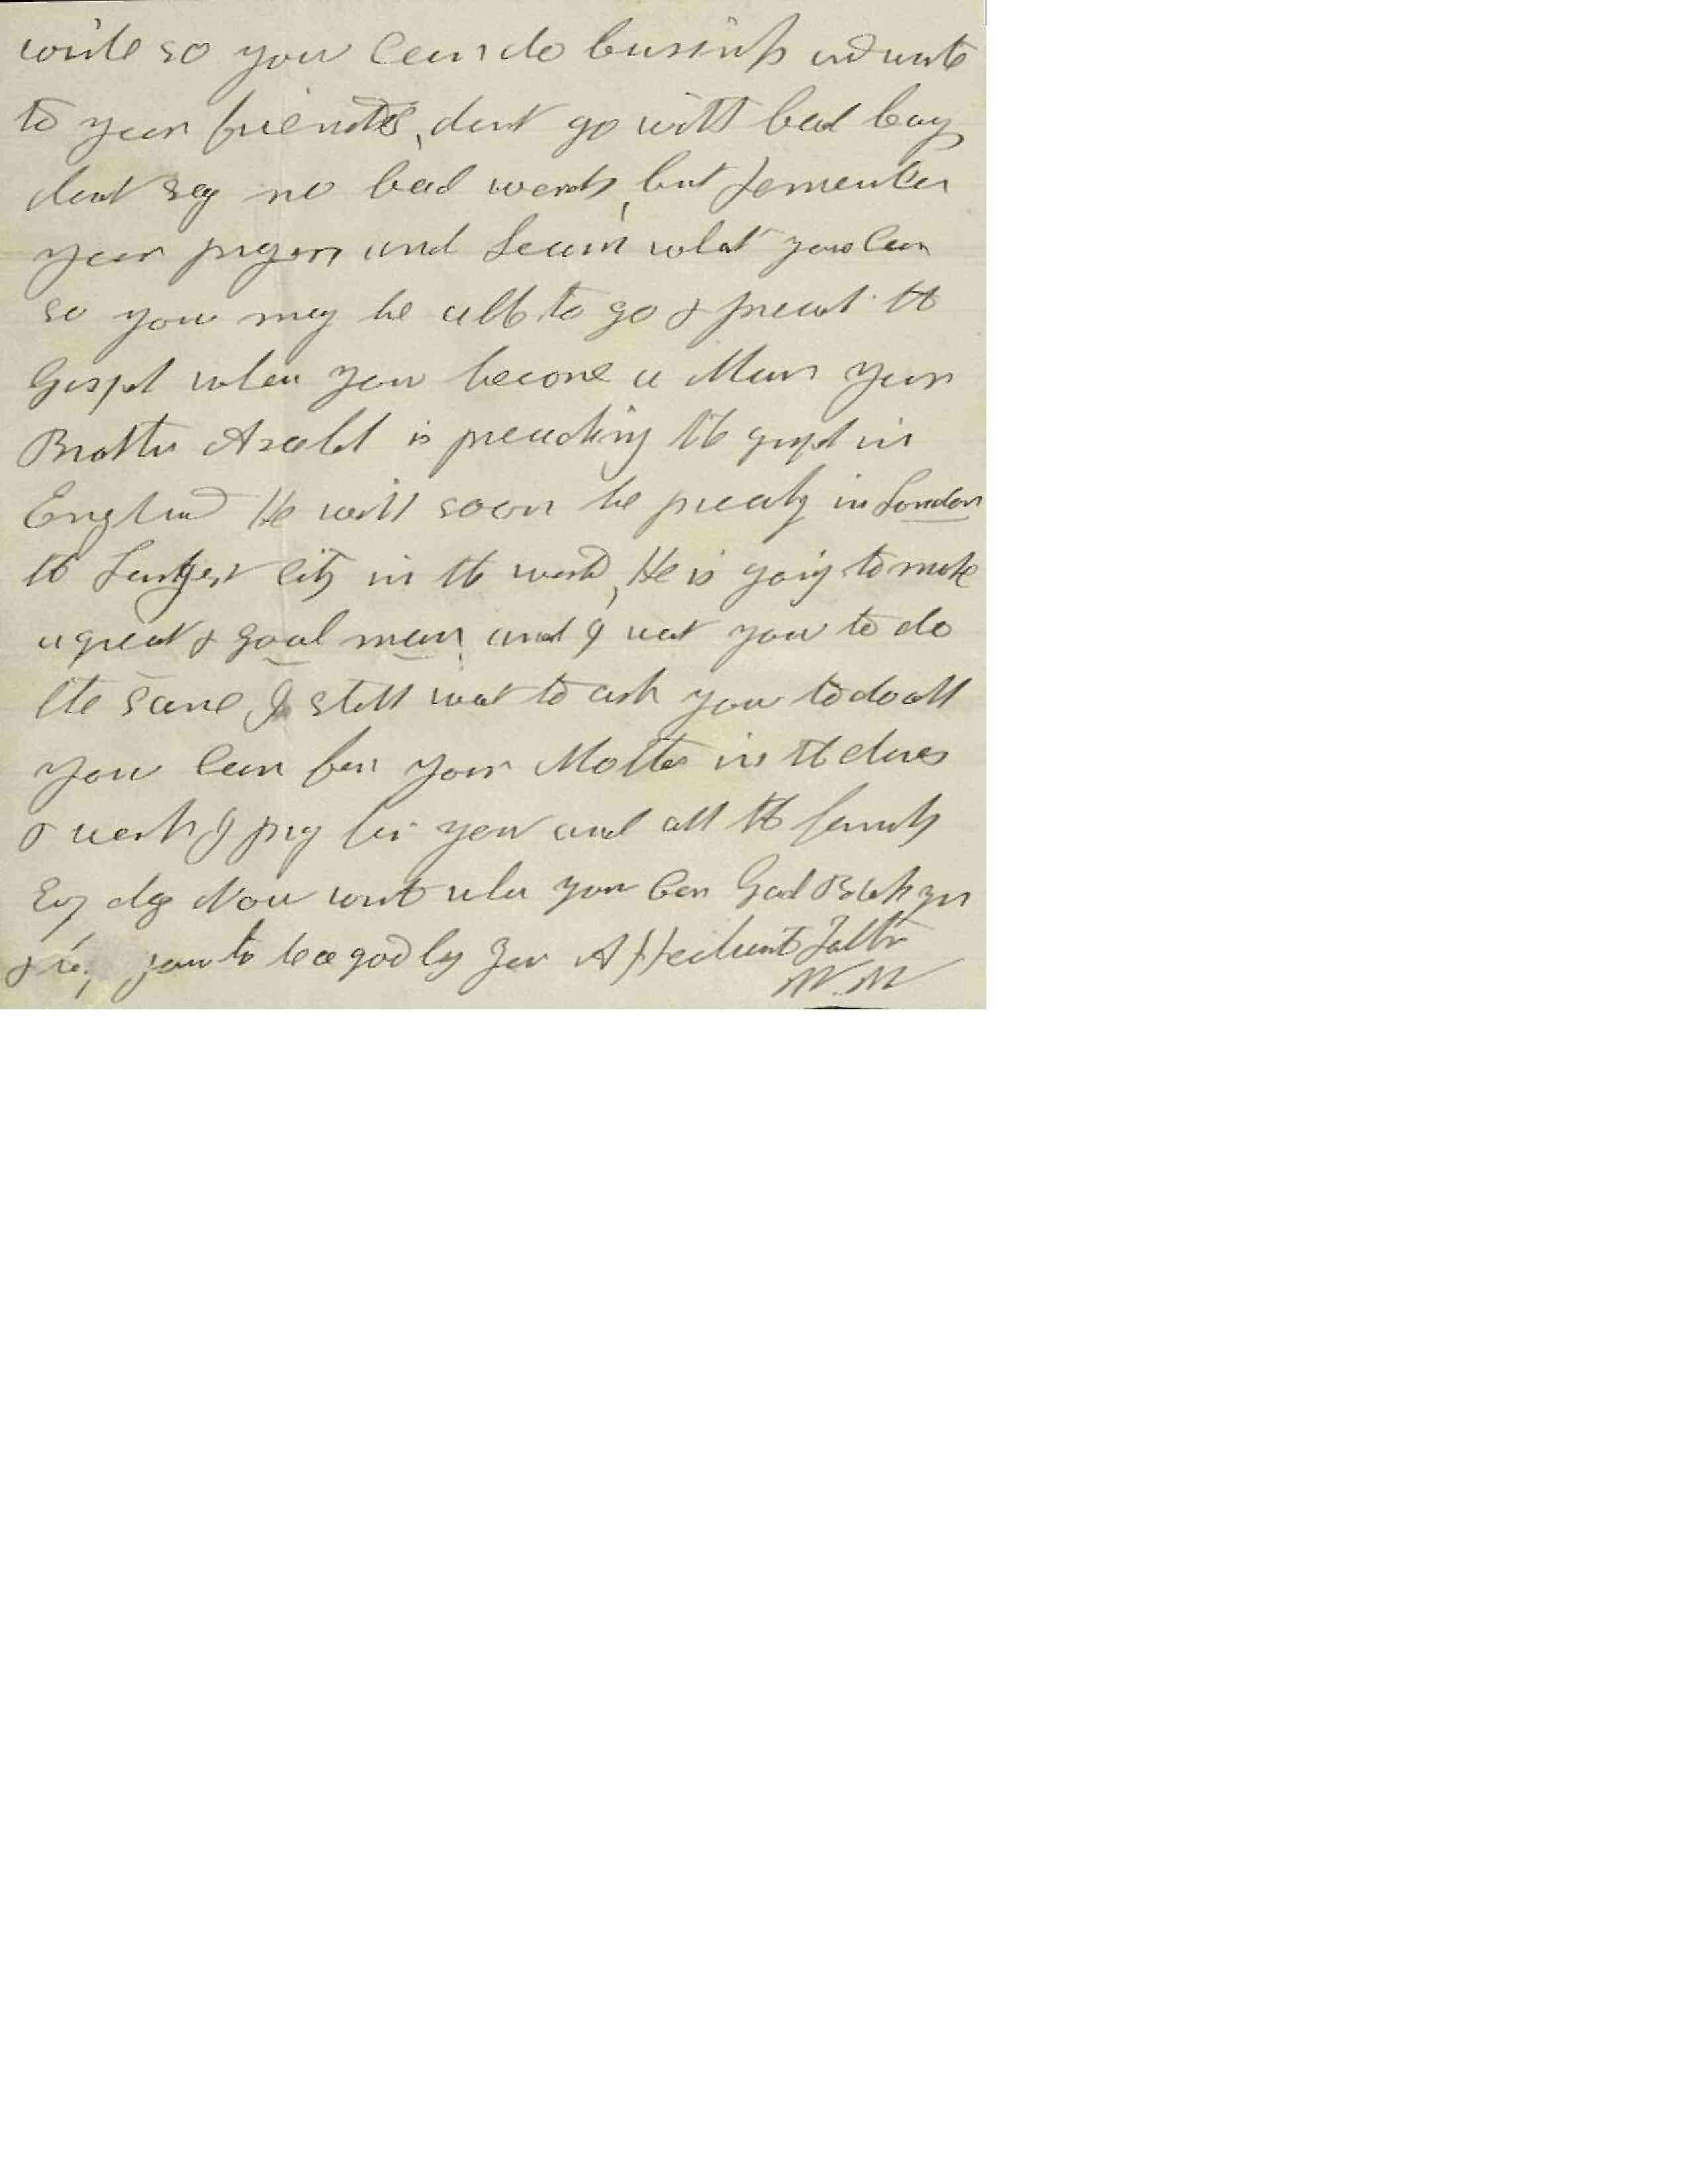 write so you can do business and write
to your friends, dont go with bad boys
dont say no bad words, but remember
your prayers and Learn what you can
so you may be able to go & preach the
Gospel when you become a Man your
Brother Asahel is preaching the gospel in
England He will soon be preachg in London
the Largest City in the world, He is going to make
a great & good man and I want you to do
the same I still want to ask you to do all
you Can for your Mother in the chores
& work I pray for you and all the family
Evry day Now write when you Can God Bless you
& you to be a good boy your Affectionate Father
W. W